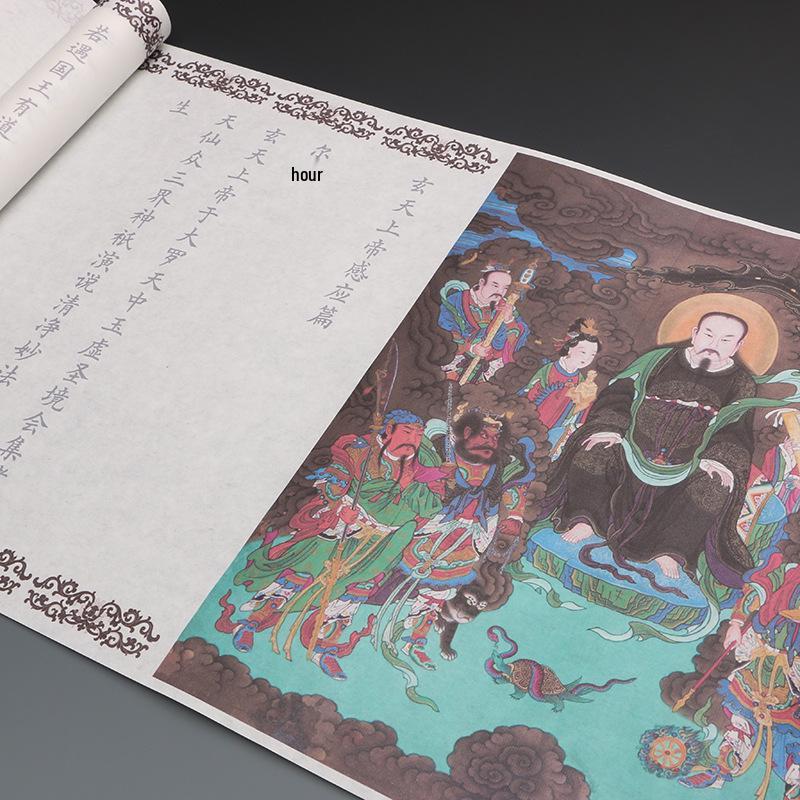 玄天上帝感应篇
尔
hour
玄天上帝于大罗天中玉虚圣境会集
天仙众三界神祇演说清净妙法
生
若遇国王有道